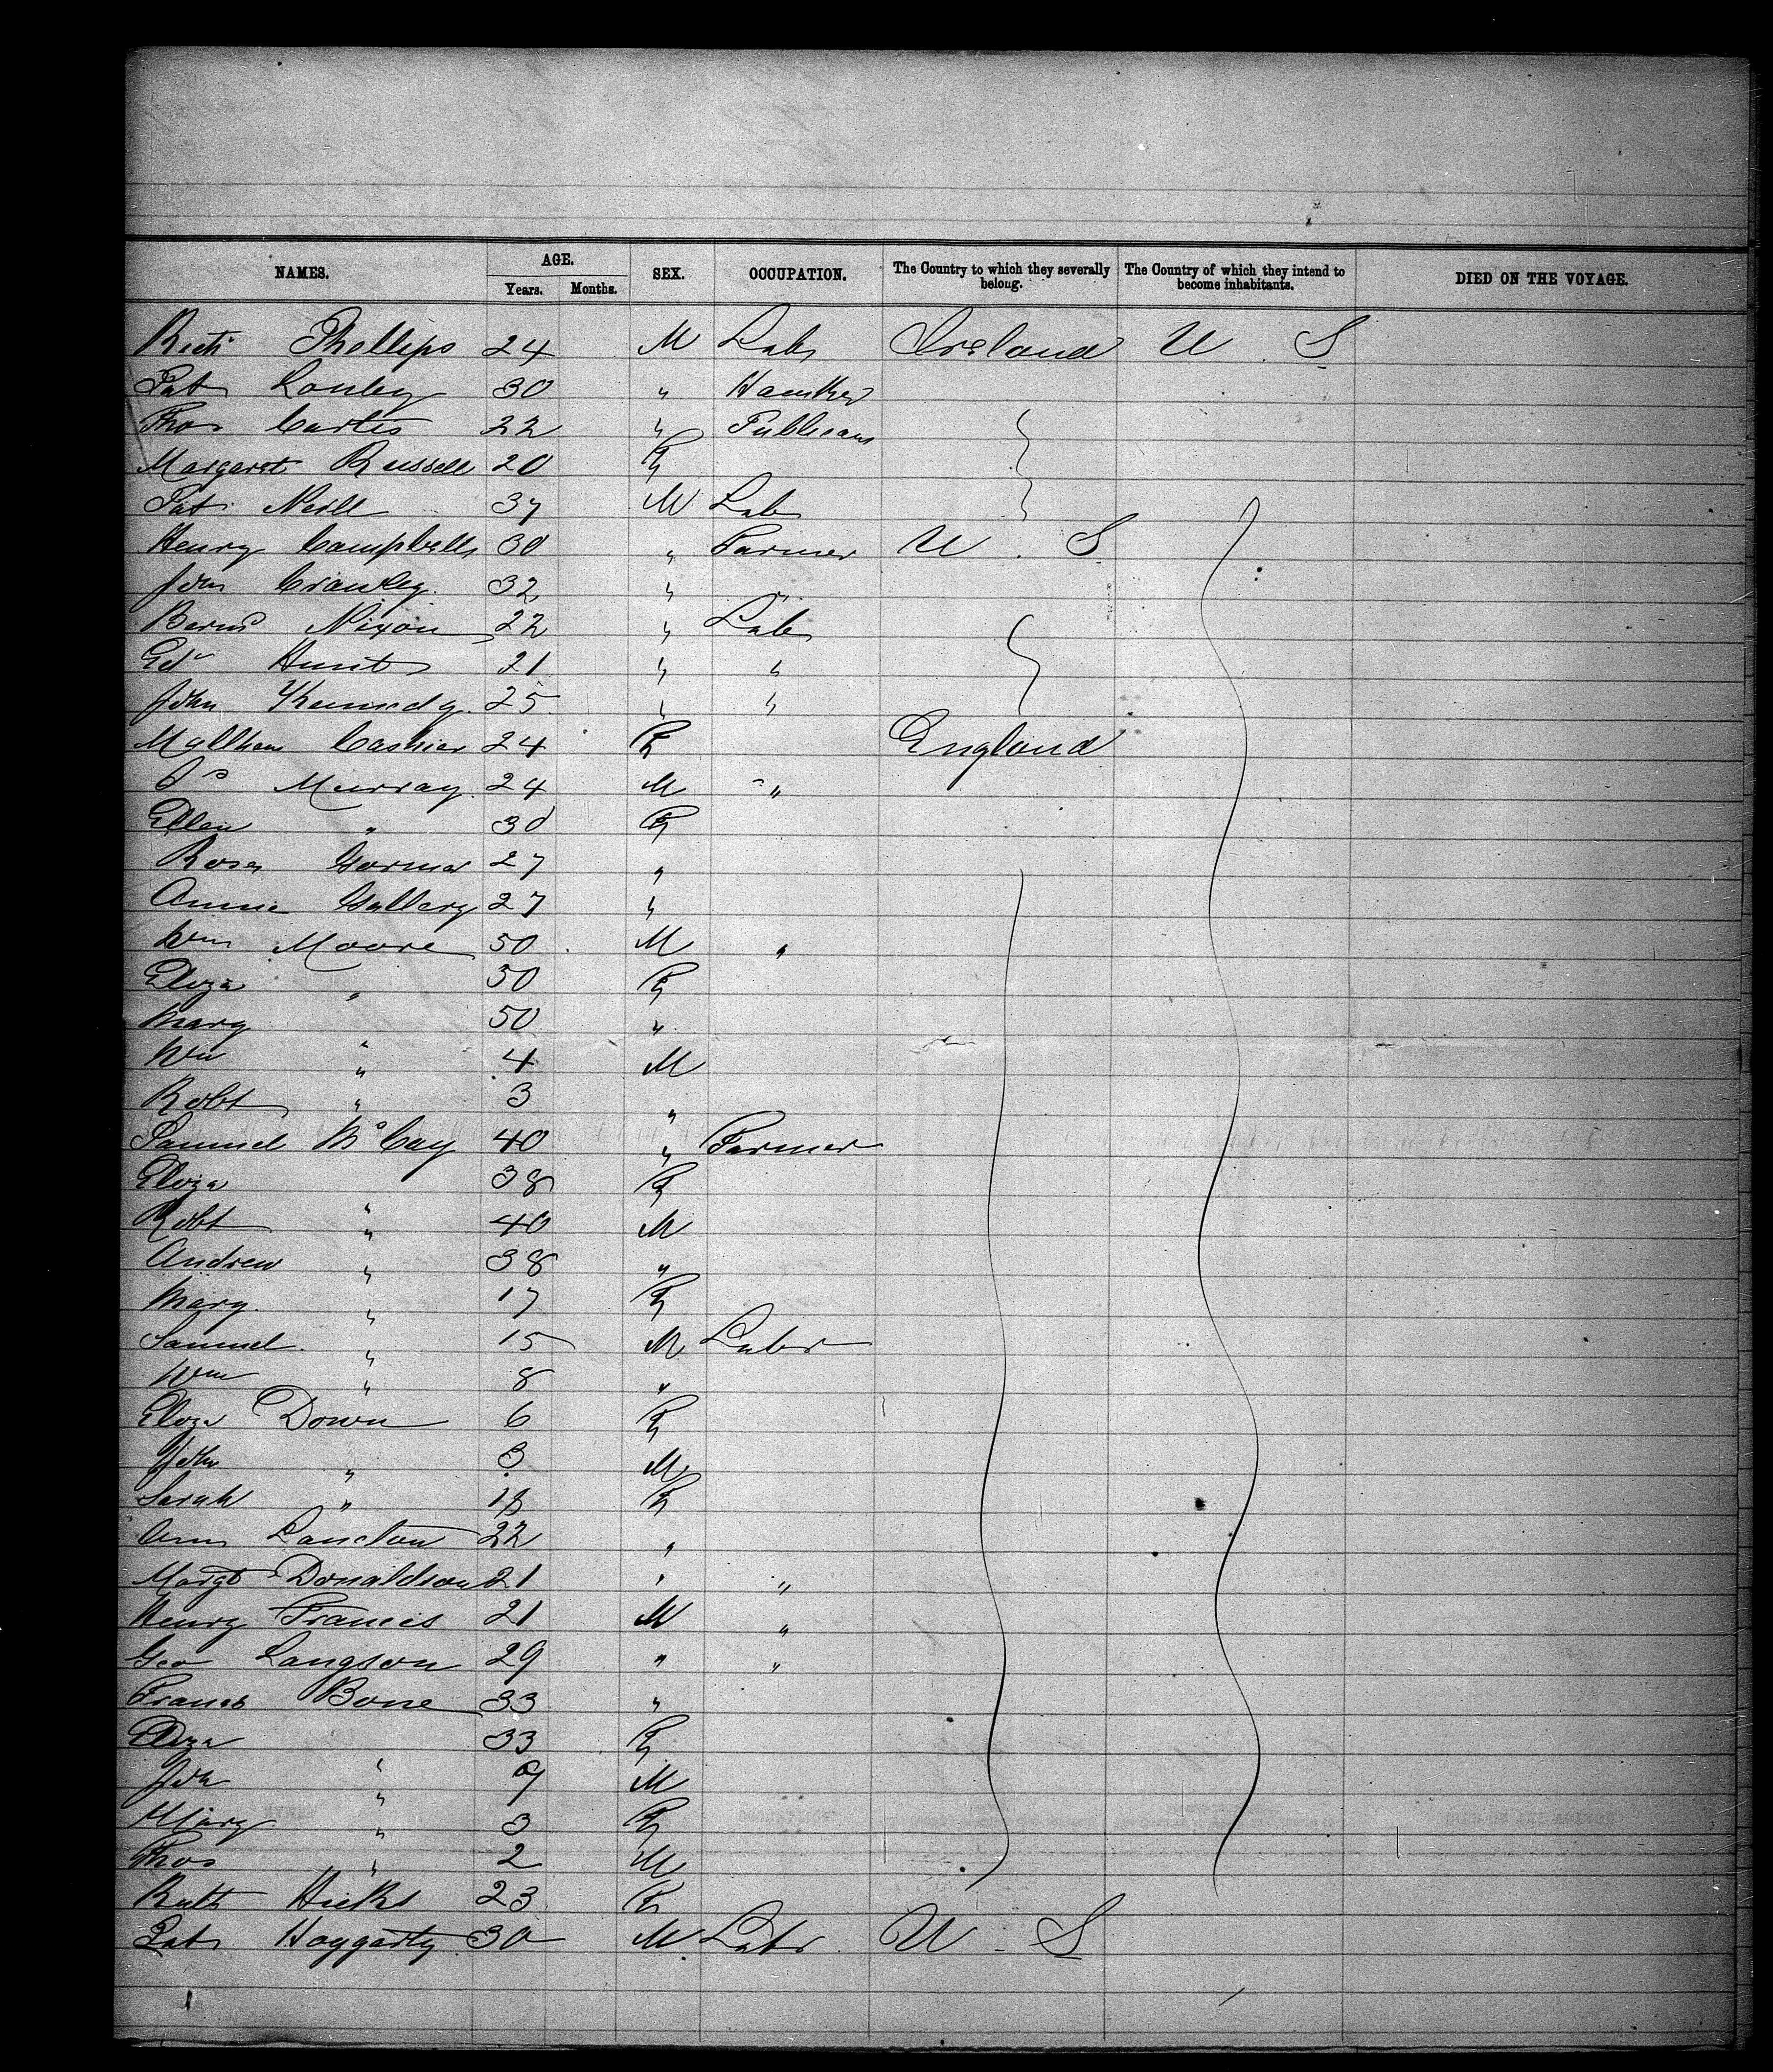 NAMES. AGE. SEX. OCCUPATION. The Country to which they severally belong. The Country of which they intend to become inhabitants. DIED ON THE VOYAGE.
Years. Months.
Phillips 24 M Labr Ireland U. S
Pat Conley 30 "
Thos Curtis 22 " Publican
Margaret Russell 20 F
Pat Neill 37 M Lab
Henry Campbell 30 " Farmer U. S
John Crawley 32 " "
Bernd Nixon 22 " Lab
Edw Hunt 21 " "
John Kennedy 25 " "
Cashier 24 F England
Jas Murray 24 M "
Ellen " 30 F
Rose Gorman 27 "
Annie Gallery 27 "
Wm Moore 50 M "
Eliza " 50 F
Mary " 50 "
Wm " 4 M
Robt " 3 "
Samuel McCay 40 " Farmer
Eliza " 38 F
Robt " 40 M
Andrew " 38 "
Mary " 17 F
Samuel " 15 M Labr
Wm " 8 "
Eliza Down 6 F
John " 3 M
Sarah " 18 F
Ann Lancton 22 "
Margt Donaldson 21 " "
Henry Francis 21 M "
Geo Langson 29 " "
Francis Bone 33 "
Eliza " 33 F
John " 9 M
Mary " 3 F
Thos " 2 M
Ruth Hicks 23 F
Pat Haggarty 30 M Labr U. S